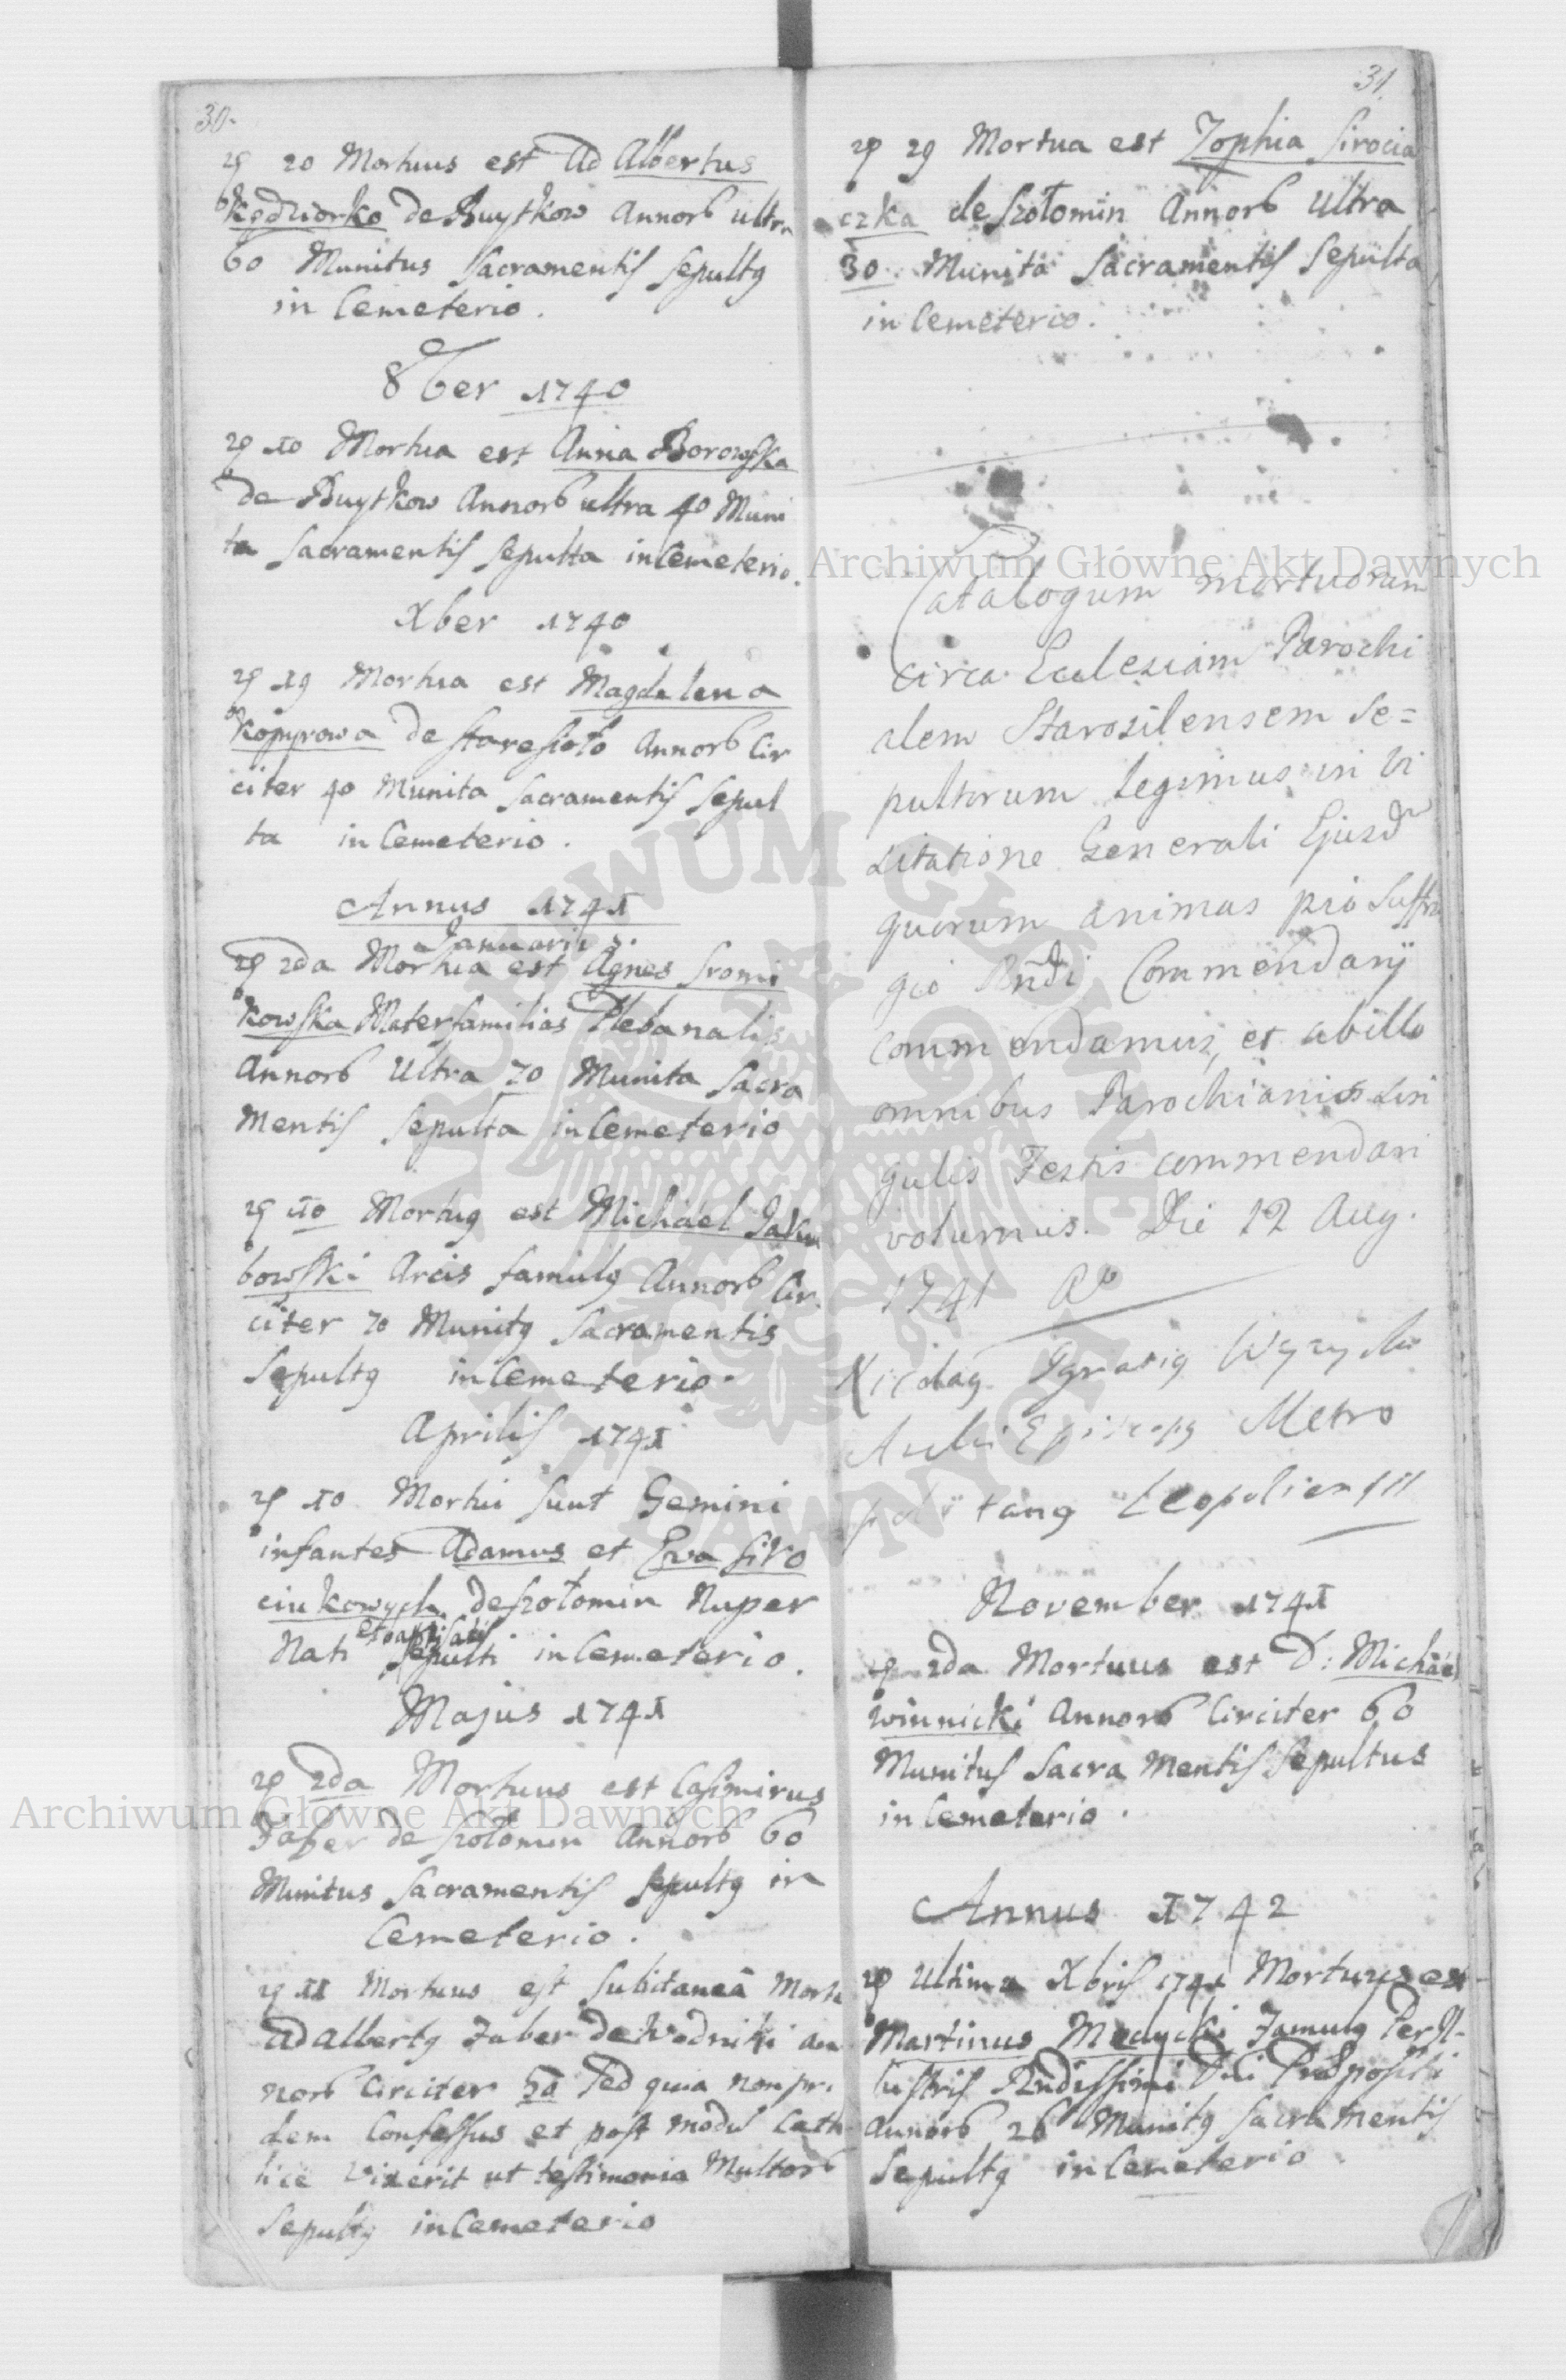 30.
20 Mortuus est Ad Albertus
Kędziorko de Buytkow Annorb ultra
60 Munitus Sacramentis Sepultg
in Cemeterio.
8ber 1740
10 Mortua est Anna Borowska
de Buytkow Annorb ultra 40 Muni
ta Sacramentis Sepulta in Cemeterio.
Xber 1740
19 Mortua est Magdalena
Kopyrowa de staresioło Annorb Cir
citer 40 Munita Sacramentis Sepul
ta in Cemeterio.
Annus 1741
Januarii
2da Mortua est Agnes Sromi
kowska Materfamilias Plebanalis
Annorb Ultra 70 Munita Sacra
Mentis Sepulta in Cemeterio
10 Mortug est Michael Jaku
bowski Arcis famulg Annorb Cir
citer 70 Munitg Sacramentis
Sepultg in Cemeterio.
Aprilis 1741
10 Mortui sunt Gemini
infantes Adamus et Ewa Siro
ciukowych de szołomin Nuper
et baptisati
Nati Sepulti in Cemeterio.
Majus 1741
2da Mortuus est Casimirus
Faber de szołomin Annorb 60
Munitus Sacramentis Sepultg in
Cemeterio.
11 Mortuus est Subitanea Morte
Adalbertg Faber de Wodniki An
norb Circiter Sed quia non pri
dem Confessus et post modu Catho
lice Vixerit ut testimonia Multorb
Sepultg in Cemeterio
31.
29 Mortua est Zophia Sirocia
czka de szołomin Annorb Ultra
30 Munita Sacramentis Sepulta
in Cemeterio.
Catalogum mortuorum
circa Ecclesiam Parochi
alem Starosilensem Se=
pultorum legimus in Vi
sitatione Generali Ejusd
quorum animas pio Suffra
gio Rndi Commendarij
commendamus, et ab illo
omnibus Parochianis Sin
gulis Festis commendari
volumus. Die 12 Aug.
1741 Ao
Nicolag Ignatig Wyżycki
Archi Episcopg Metro
politang Leopoliensis
November 1741
2da Mortuus est D: Michael
Winnicki Annorb Circiter 60
Munitus Sacra Mentis Sepultus
in Cemeterio.
Annus 1742
Ultima Xbris 1741 Mortuus est
Martinus Medycki Famulg Per Il-
lustris Rndissimi Dni Præpositi
Annorb 26 Munitg Sacramentis
Sepultg in Cemeterio.
Archiwum Główne Akt Dawnych
Archiwum Główne Akt Dawnych
ARCHIWUM GŁÓWNE AKT DAWNYCH